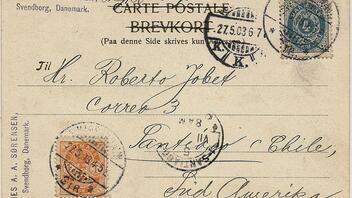 Svendborg, Danemark.
CARTE POSTALE
BREVKORT
(Paa denne Side skrives kun
27.5.03 6-7
K. K.
Til Hr. Roberto Jobet
Correo 3
Santiago, Chile,
Sud Amerika
SANTIAGO
VII
8 AM
ES A. A. SØRENSEN,
Svendborg, Danemark.